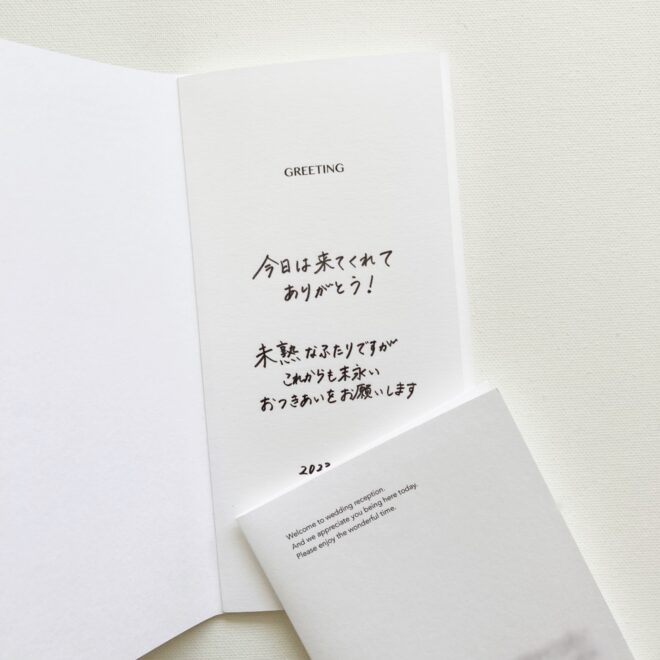 GREETING
今日は来てくれて
ありがとう!
未熟なふたりですが
これからも末永い
おつきあいをお願いします
2022
Welcome to wedding reception.
And we appreciate you being here today.
Please enjoy the wonderful time.